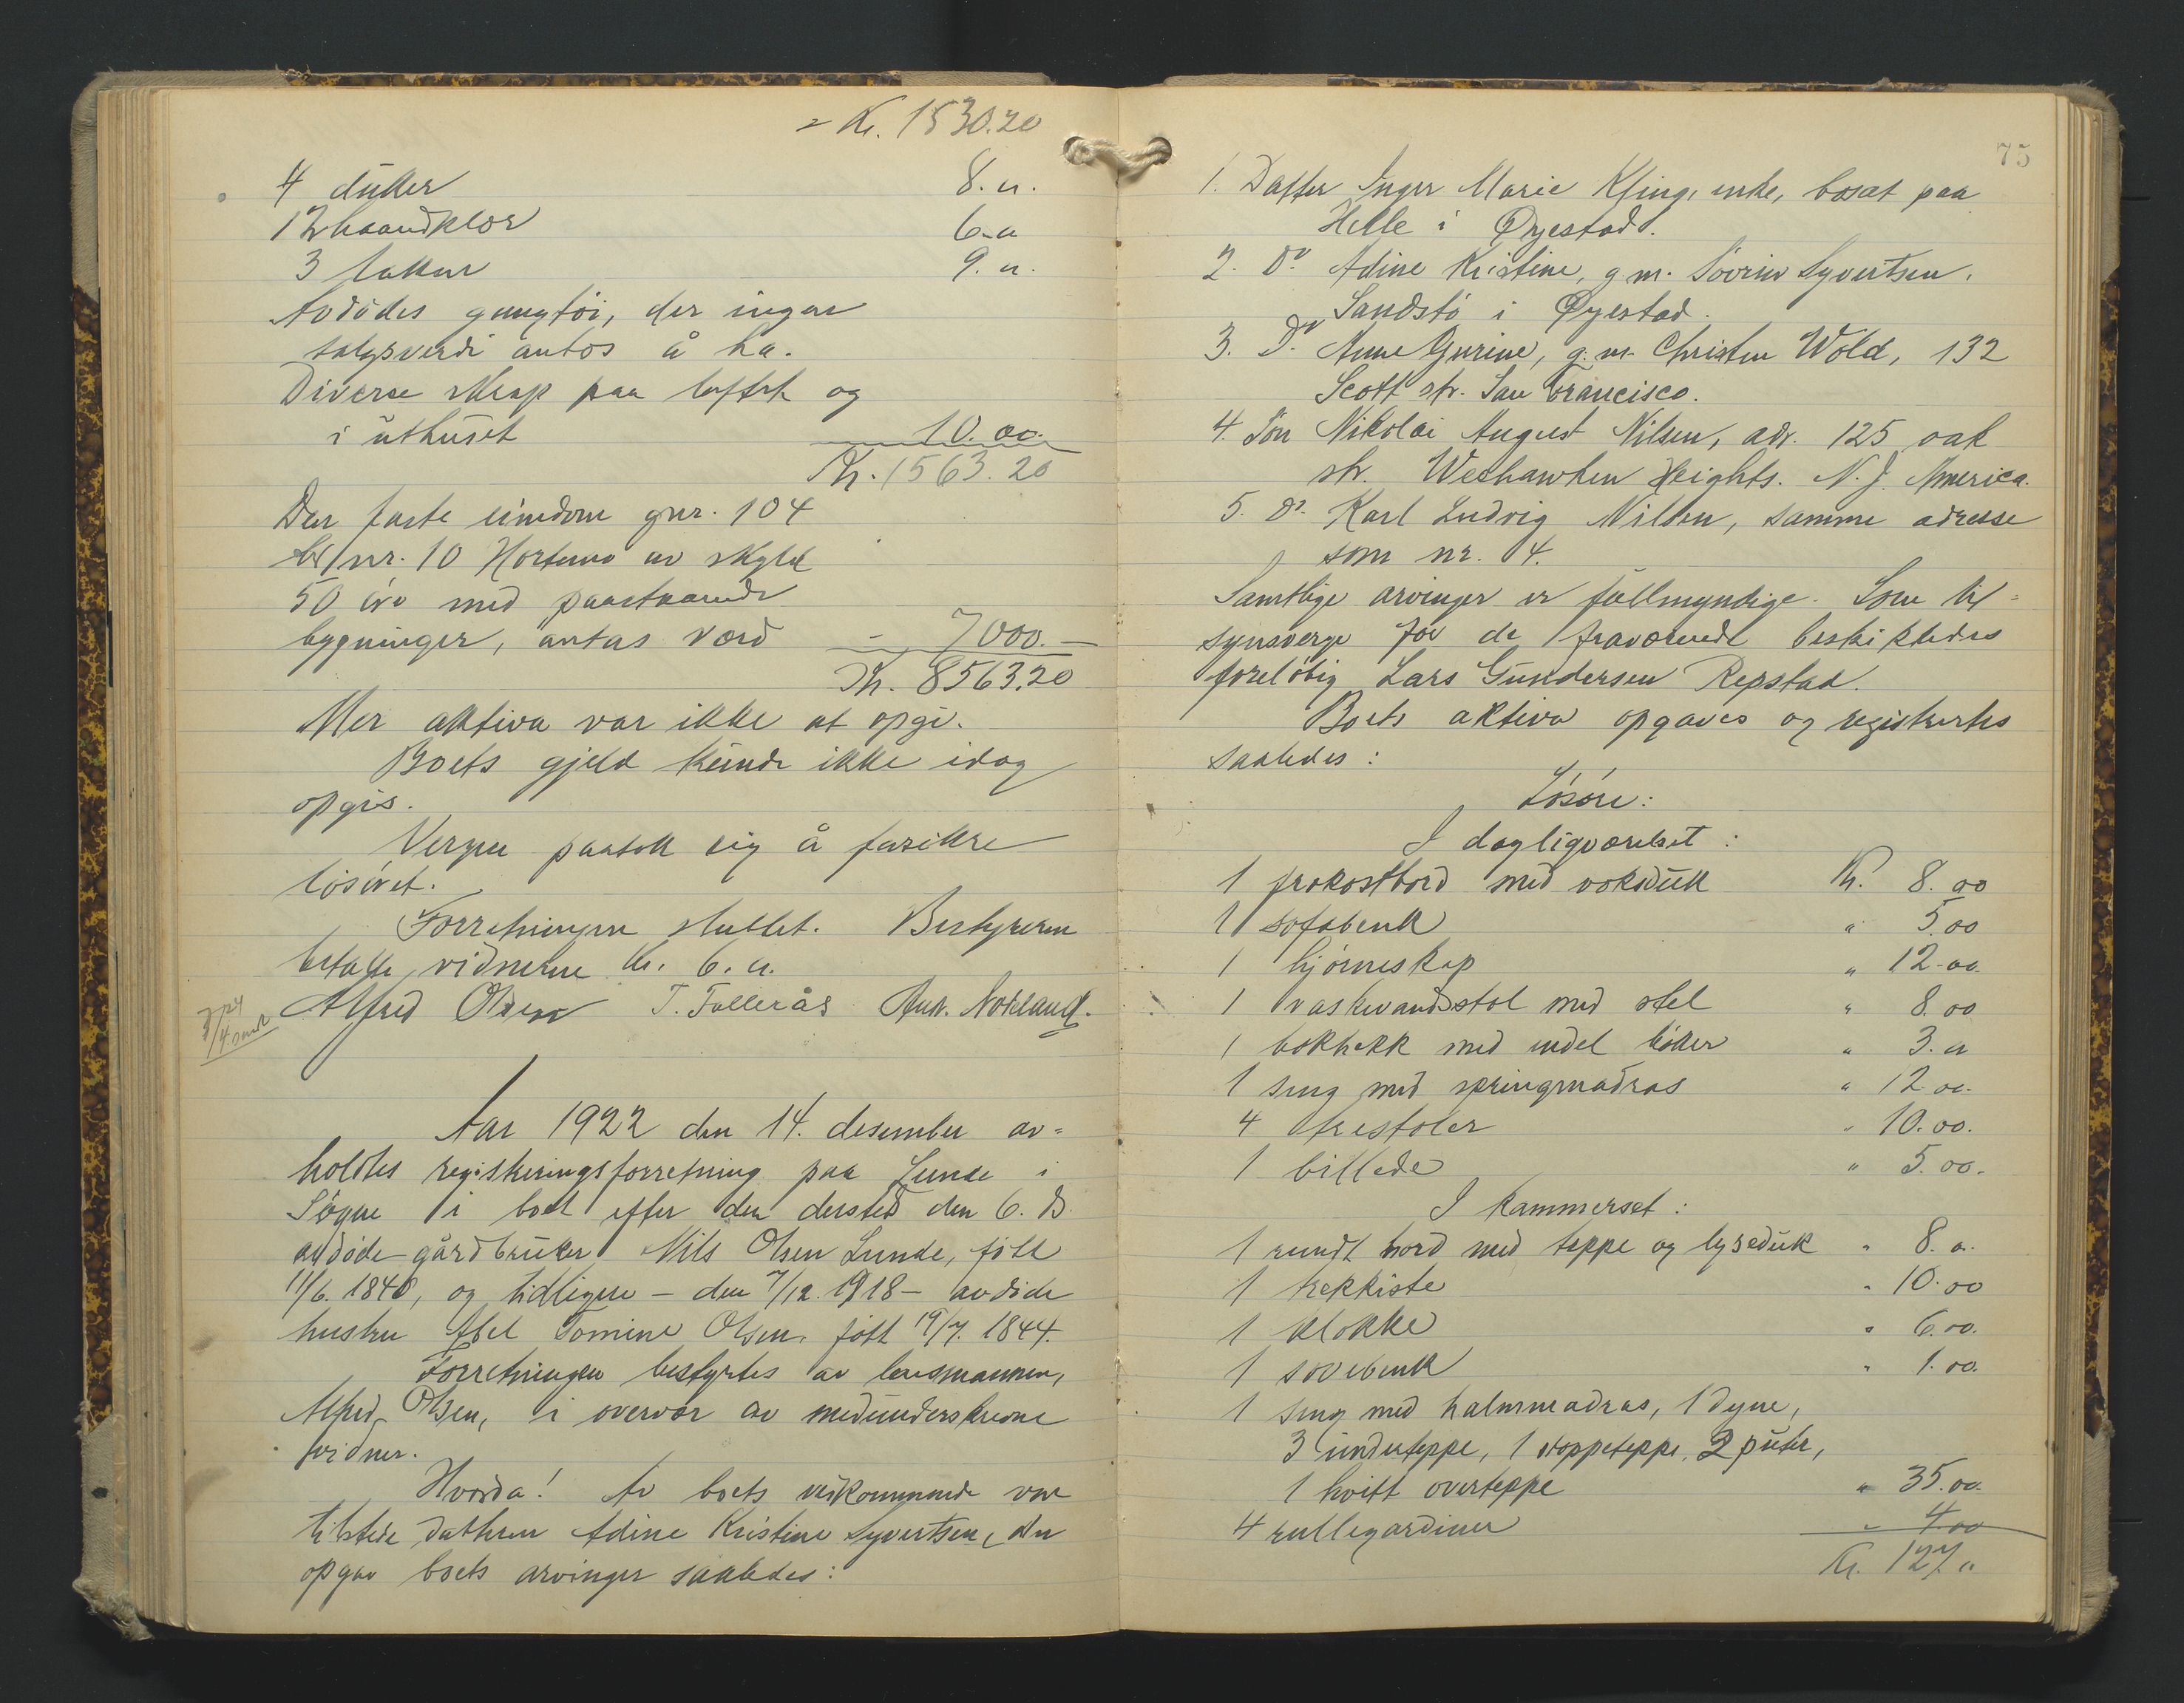 = Kr. 1530.20
4 duker 8. "
12 haandklær 6. "
3 lakner 9. "
Avdødes gangtöi, der ingen
salgsverdi antos å ha.
Diverse skrap paa loftet og
i uthuset 10.00.
Kr. 1563.20
Den faste eiendom gnr. 104
br.nr. 10 Hortemo av skyld
50 öre med paastaaende
bygninger, antas værd - 7000.-
Kr. 8563.20
Mer aktiva var ikke at opgi.
Boets gjeld kunde ikke idag
opgis.
Vergen paatok sig å forsikre
lösöret.
Forretningen sluttet. Bestyreren
betalte vidnerne kr. 6. "
Alfred Olsen T. Follerås And. Nokland.
Aar 1922 den 14. desember av=
holdtes registreringsforretning paa Lunde i
Sögne i boet efter den dersted den 6. ds.
avdöde gårdbruker Nils Olsen Lunde, född
11/6. 1840, og tidligere - den 7/12. 1918 - avdöde
hustru Abel Tomine Olsen, född 19/7. 1844.
Forretningen bestyrtes av lensmannen,
Alfred Olsen, i overvær av medunderskrevne
vidner.
Hvorda! Av boets vedkommende var
tilstede datteren Adine Kristine Syvertsen, der
opgav boets arvinger saaledes:
75
1. Datter Inger Marie Kfing, enke, bosat paa
Helle i Øyestad.
2. Do. Adine Kristine, g.m. Sövrin Syvertsen,
Sandstö i Øyestad.
3. Do. Anne Gurine, g.m. Christen Wold, 132
Scott str. San Francisco.
4. Sön Nikolai August Nilsen, adr. 125 oak
str. Weehawken Heights. N.J. America.
5. Do. Karl Ludvig Nilsen, samme adresse
som nr. 4.
Samtlige arvinger er fullmyndige. Som til=
synsverge for de fraværende beskikkedes
foreløbig Lars Gundersen Repstad.
Boets aktiva opgaves og registrertes
saaledes:
Lösöre:
I dagligværelset:
1 frokostbord med voksduk Kr. 8.00
1 sofabenk " 5.00
1 hjörneskap " 12.00.
1 vaskevandsstol med stel " 8.00
1 bokhekk med endel böker " 3. "
1 seng med springmadras " 12.00.
4 trestoler " 10.00.
1 billede " 5.00.
I kammerset:
1 rundt bord med teppe og lyseduk " 8. "
1 trekkiste " 10.00
1 klokke " 6.00.
1 sovebenk " 1.00.
1 seng med halmmadras, 1 dyne,
3 underteppe, 1 stoppeteppe, 2 puter,
1 hvitt overteppe " 35.00.
4 rullegardiner " 4.00
Kr. 127. "